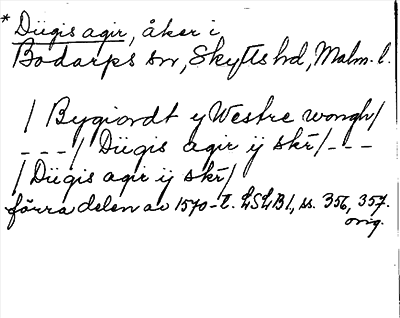 * Dügis agir, åker i
Bodarps sn, Skytts hd, Malm. l.
/ Bygiordt y Westre wongh/
---/ Dügis agir ij skr̄/---
/ Dügis agir ij skr̄/
förra delen av 1570-t. LSLB1, ss. 356, 357.
orig.